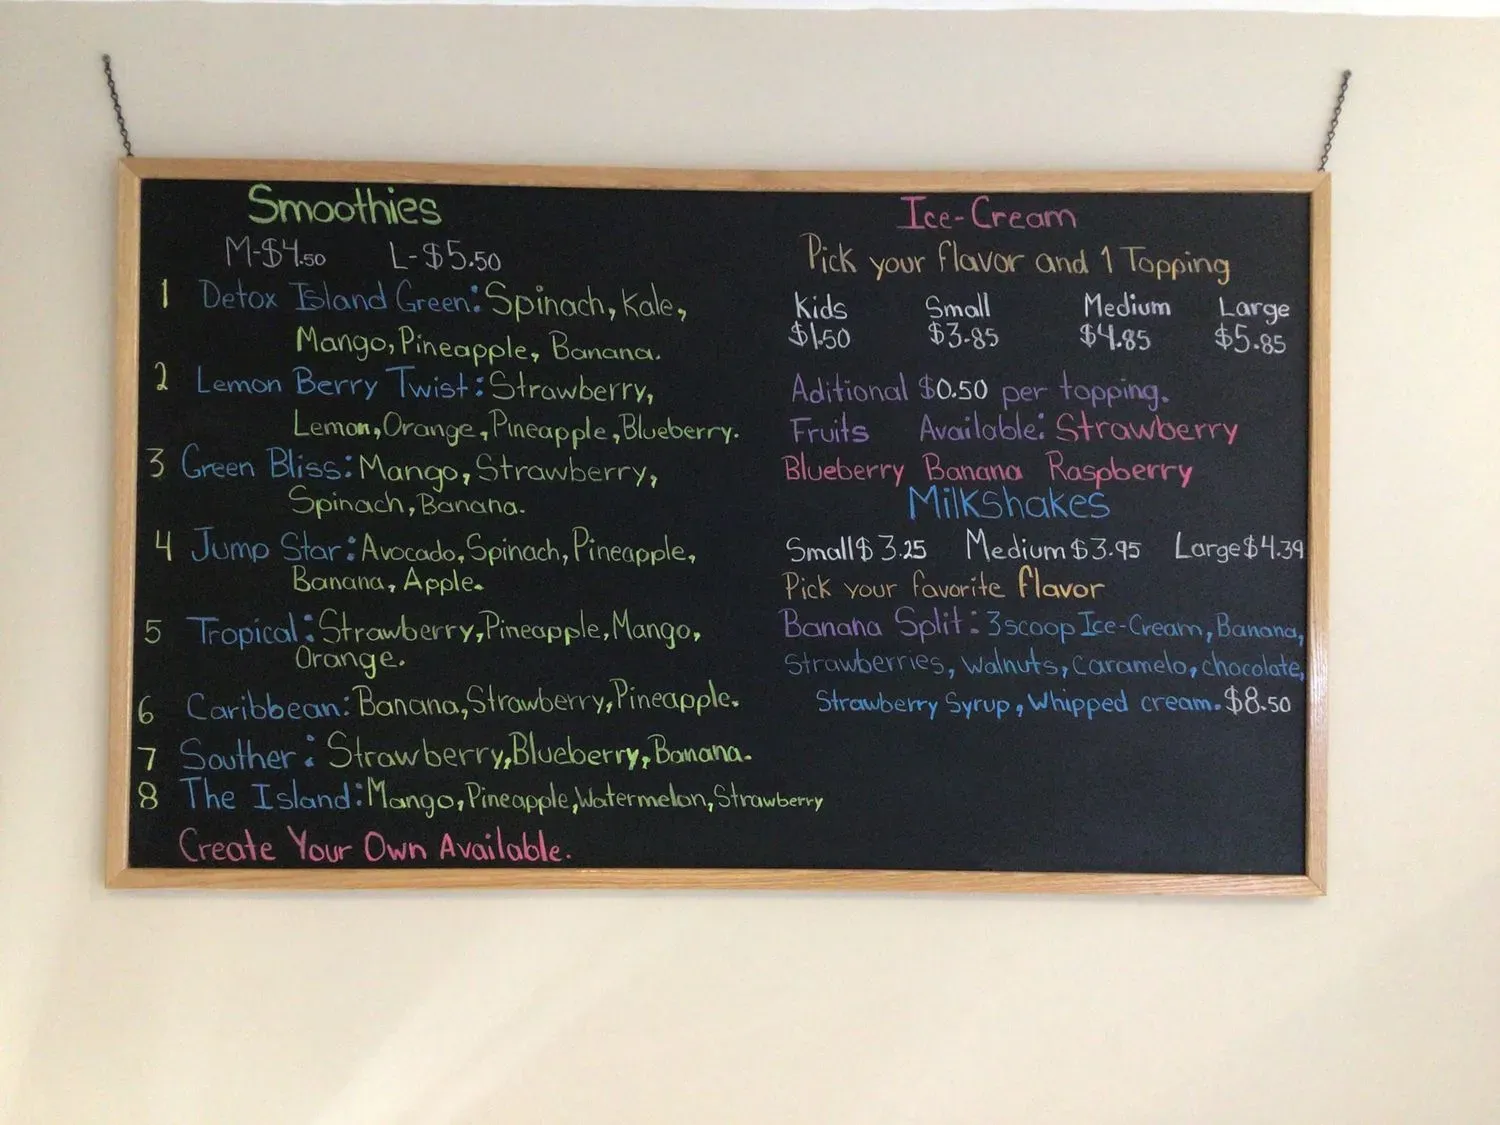 Smoothies
M-$4.50 L-$5.50
1 Detox Island Green: Spinach, Kale,
Mango, Pineapple, Banana.
2 Lemon Berry Twist: Strawberry,
Lemon, Orange, Pineapple, Blueberry.
3 Green Bliss: Mango, Strawberry,
Spinach, Banana.
4 Jump Star: Avocado, Spinach, Pineapple,
Banana, Apple.
5 Tropical: Strawberry, Pineapple, Mango,
Orange.
6 Caribbean: Banana, Strawberry, Pineapple.
7 Souther: Strawberry, Blueberry, Banana.
8 The Island: Mango, Pineapple, Watermelon, Strawberry
Create Your Own Available.
Ice-Cream
Pick your flavor and 1 Topping
Kids Small Medium Large
$1.50 $3.85 $4.85 $5.85
Aditional $0.50 per topping.
Fruits Available: Strawberry
Blueberry Banana Raspberry
Milkshakes
Small $3.25 Medium $3.95 Large $4.39
Pick your favorite flavor
Banana Split: 3 scoop Ice-Cream, Banana,
Strawberries, walnuts, caramelo, chocolate,
Strawberry Syrup, Whipped cream. $8.50